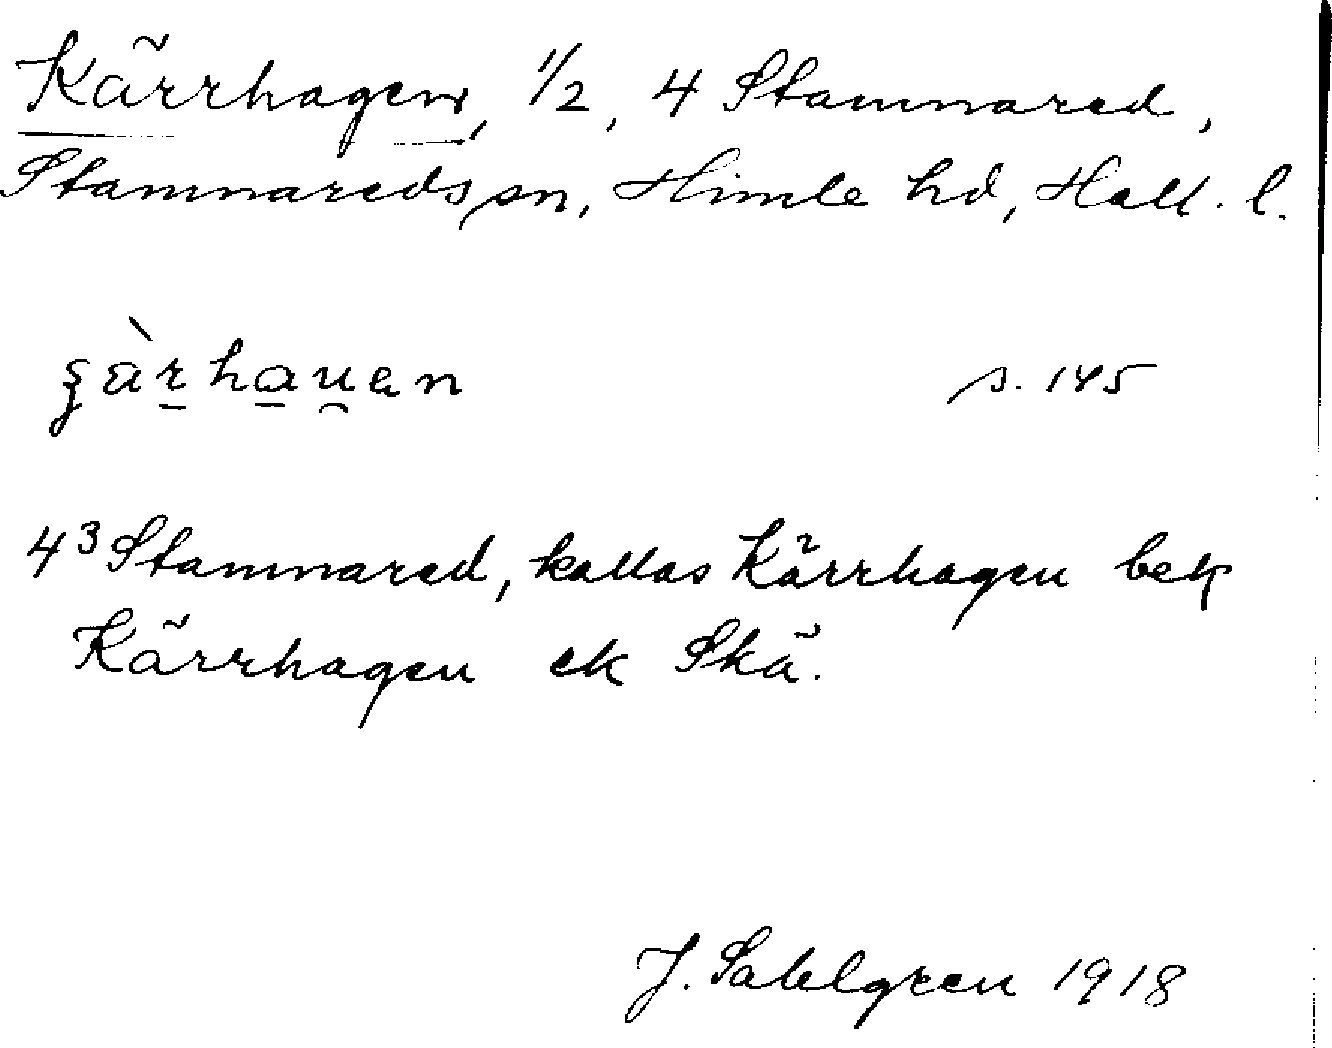 Kärrhagen, 1/2, 4 Stamnared,
Stamnareds sn, Himle hd, Hall. l.
s. 145
4³ Stamnared, kallas Kärrhagen bek
Kärrhagen ek Skä.
J. Sahlgren 1918